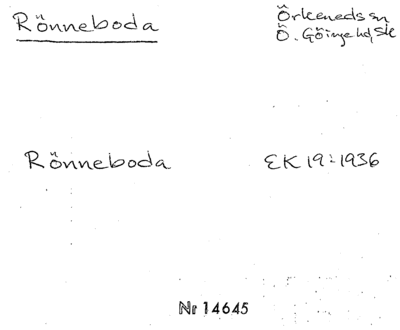 Rönneboda
Örkeneds sn
Ö. Göinge hd, Sk
Rönneboda EK 19:1936
Nr 14645